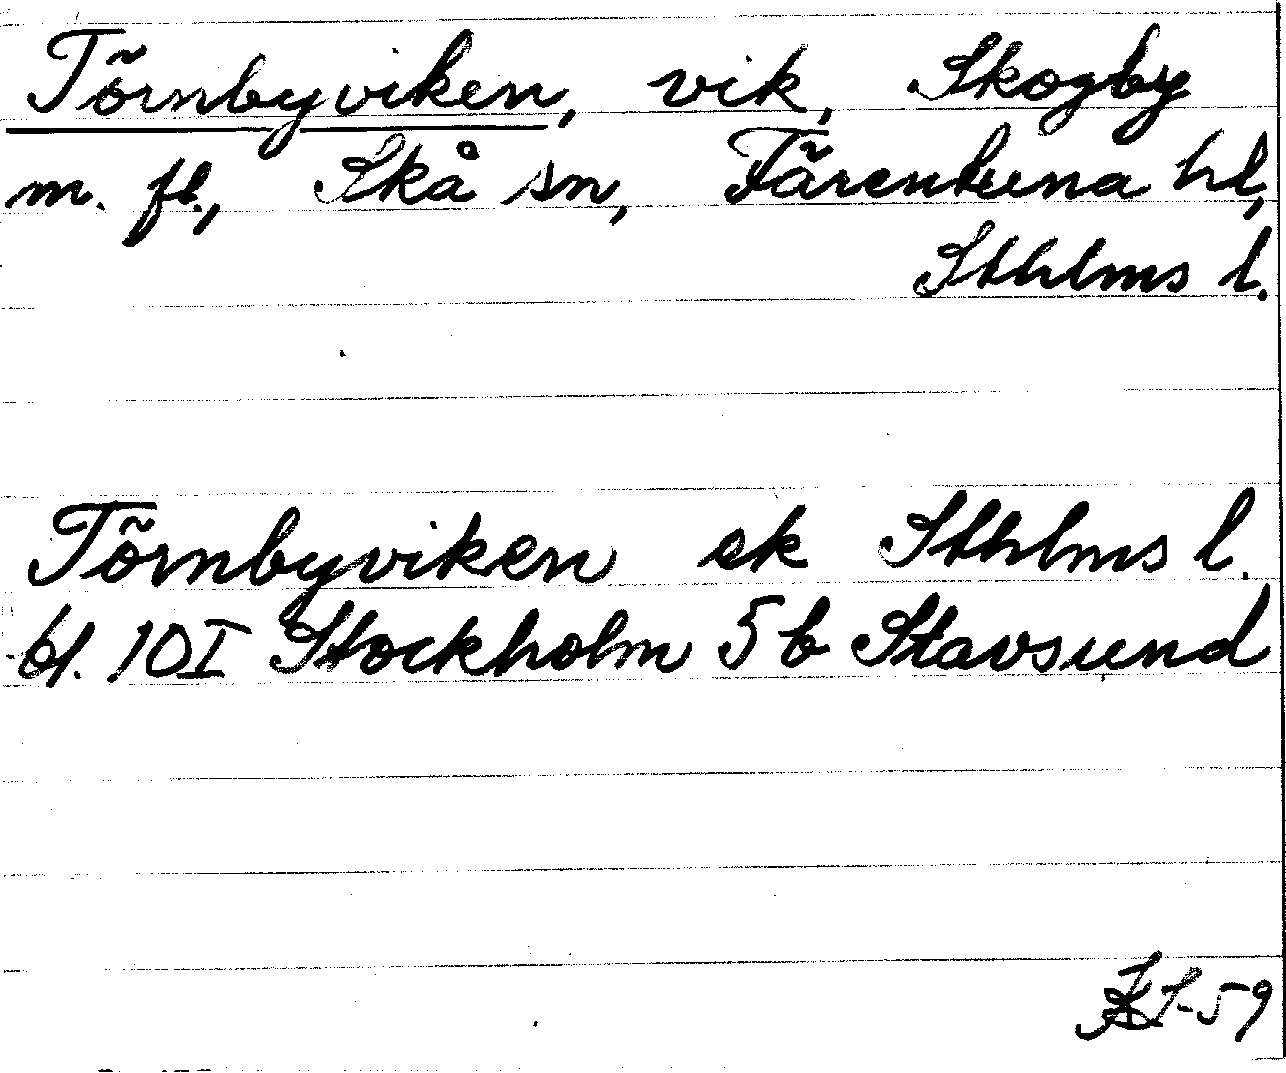 Törnbyviken, vik, Skogby
m. fl., Skå sn, Färentuna hd,
Sthlms l.
Törnbyviken ek Sthlms l.
bl. 10I Stockholm 5b Stavsund
-59